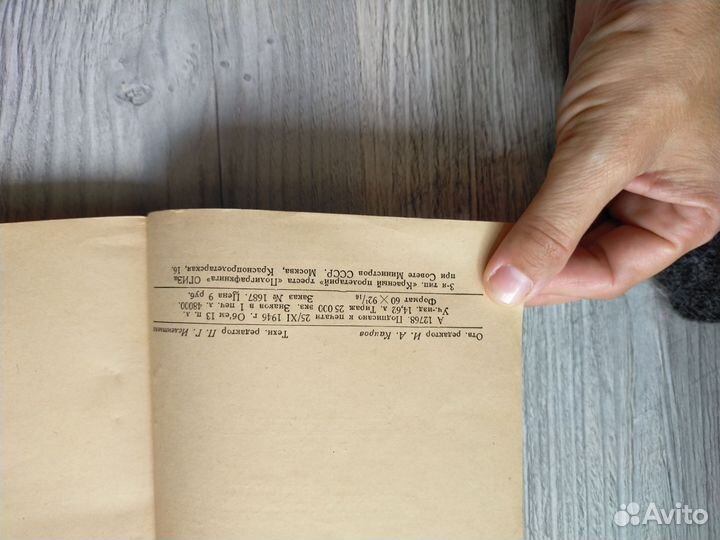 Отв. редактор И. А. Каиров Техн. редактор П. Г.
А 12768. Подписано к печати 25/XI 1946 г. Об'ем 13 п. л.
Уч.-изд. 14,62 л. Тираж 25 000 экз. Знаков в 1 печ. л. 48000.
Формат 60 × 92/16 Заказ № 1687. Цена 9 руб.
3-я тип. «Красный пролетарий» треста «Полиграфкнига» ОГИЗа
при Совете Министров СССР. Москва, Краснопролетарская, 16.
Avito